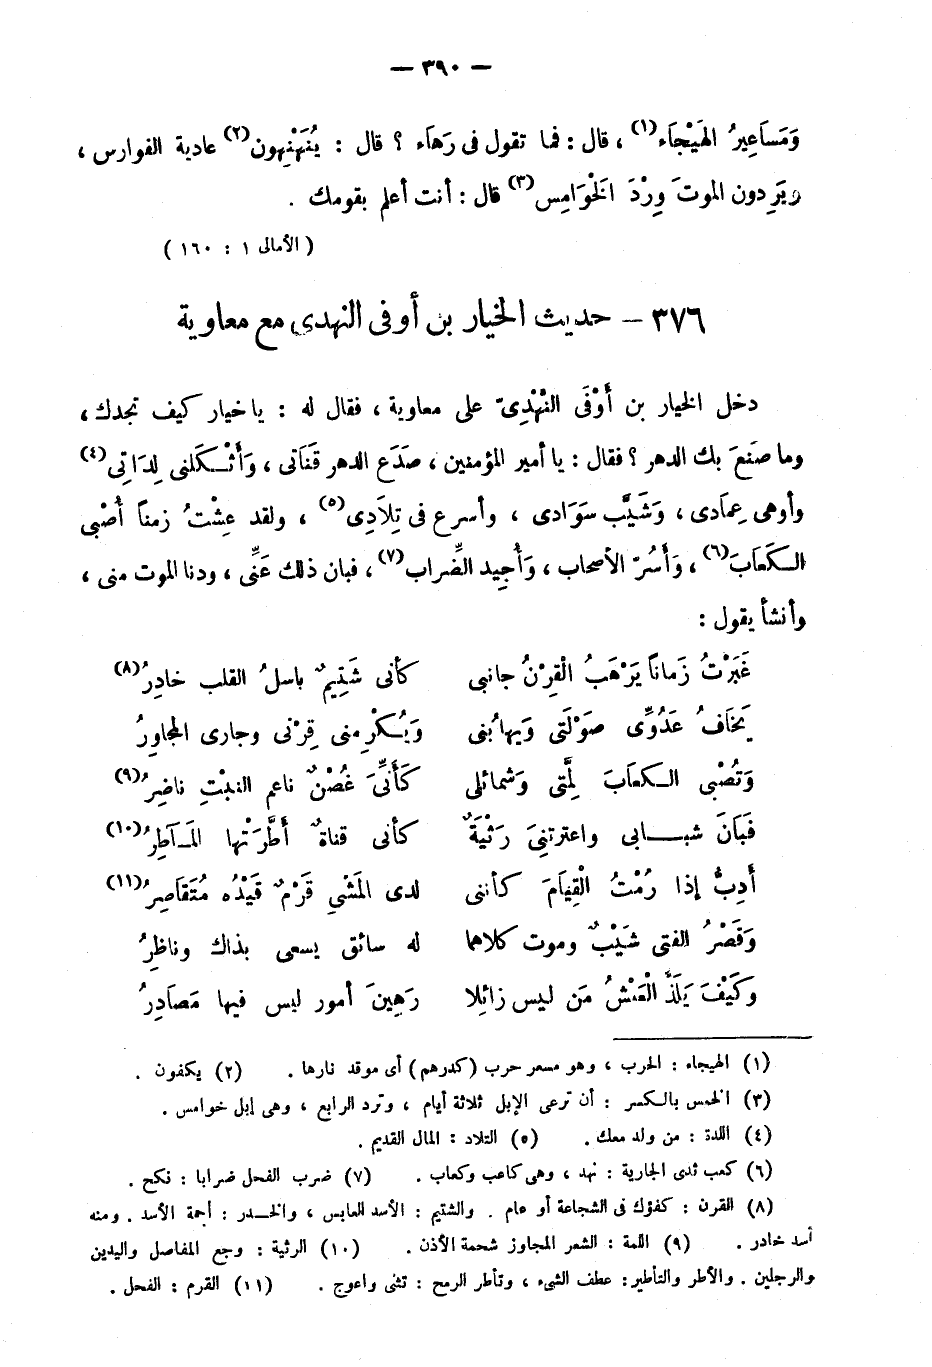 — ٣٩٠ —
وَمَسَاعِيرُ الهَيْجَاء(١) ، قال : فما تقول فى رَهَاء ؟ قال : يُنَهْنِهون(٢) عادية الفوارس ،
ويَرِدون الموتَ وِرْدَ الخَوَامِس(٣) قال : أنت أعلم بقومك .
( الأمالى ١ : ١٦٠ )
٣٧٦ — حديث الخيار بن أوفى النهدى مع معاوية
دخل الخيار بن أَوْفَى النَّهْدِىّ على معاوية ، فقال له : يا خيار كيف تجدك ،
وما صنَعَ بك الدهر ؟ فقال : يا أمير المؤمنين ، صدَعَ الدهر قَنَاتى ، وَأَثْكَلنى لِدَاتِى(٤)
وأوهى عِمَادى ، وَشَيَّب سَوَادى ، وأسرع فى تِلَادِى(٥) ، ولقد عِشْتُ زمناً أُصْبِى
الكَعَابَ(٦) ، وَأَسُرّ الأصحاب ، وَأُجِيد الضِّراب(٧) ، فبان ذلك عَنِّى ، ودنا الموت منى ،
وأنشأ يقول :
غَبَرْتُ زَماناً يَرْهَبُ الْقِرْنُ جانبى كأنى شَتِيمٌ باسلُ القلب خادِرُ(٨)
يَخَافُ عَدُوِّى صَوْلَتى وَيهابُنى وَيُكْرِمنى قِرْنى وجارى المجاوِرُ
وَتُصْبِى الكعابَ لِمَّتى وَشمائلى كَأَنِّىَ غُصْنٌ ناعم النبْتِ ناضِرُ(٩)
فَبَانَ شبابى واعترتنىَ رَثْيَةٌ كأنى قناةٌ أَطَّرَتْها المَآطِرُ(١٠)
أَدِبُّ إذا رُمْتُ الْقِيَامَ كأننى لدى المَشْىِ قَرْمٌ قَيْدُه مُتَقَاصِرُ(١١)
وَقَصْرُ الفتى شَيْبٌ وموت كلاهما له سائق يسعى بذاك وناظِرُ
وَكَيْفَ يَلَذُّ الْعَيْشُ مَن ليس زائِلا رَهِينَ أمور ليس فيها مَصَادِرُ
(١) الهيجاء : الحرب ، وهو مسعر حرب (كدرهم) أى موقد نارها . (٢) يكفون .
(٣) الخمس بالكسر : أن ترعى الإبل ثلاثة أيام ، وترد الرابع ، وهى إبل خوامس .
(٤) اللدة : من ولد معك . (٥) التلاد : المال القديم .
(٦) كعب ثدى الجارية : نهد ، وهى كاعب وكعاب . (٧) ضرب الفحل ضرابا : نكح .
(٨) القرن : كفؤك فى الشجاعة أو عام . والشتيم : الأسد العابس ، والخدر : أجمة الأسد . ومنه
أسد خادر . (٩) اللمة : الشعر المجاوز شحمة الأذن . (١٠) الرثية : وجع المفاصل واليدين
والرجلين . والأطر والتأطير : عطف الشىء ، وتأطر الرمح : تثنى واعوج . (١١) القرم : الفحل .